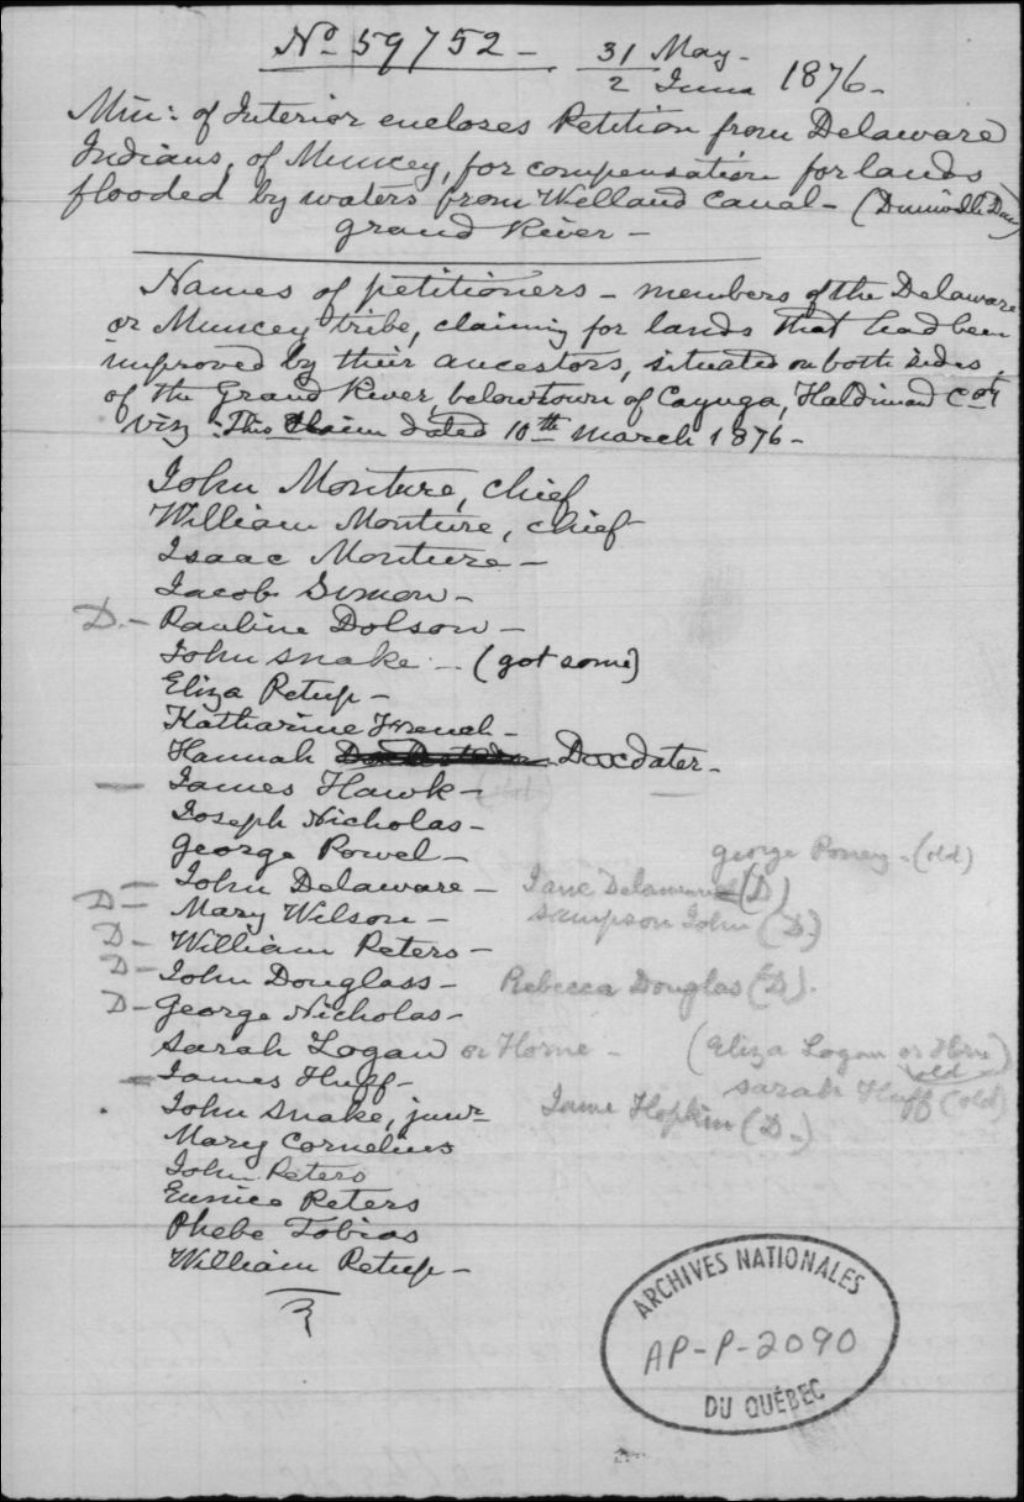 No 59752 - 31 May - 
2 June 1876 -
Min: of Interior encloses Petition from Delaware
Indians, of Muncey, for compensation for lands
flooded by waters from Welland Canal - (Dunnville Dam)
Grand River -
Names of petitioners - members of the Delaware
or Muncey tribe, claiming for lands that had been
improved by their ancestors, situated on both sides
of the Grand River, below town of Cayuga, Haldimand Coy
viz: This Claim dated 10th March 1876 -
John Monture, chief
William Monture, chief
Isaac Monture -
Jacob Simon -
D. - Pauline Dolson -
John Snake - (got some)
Eliza Petup -
Katharine French -
Hannah Doxdater -
James Hawk -
Joseph Nicholas -
George Powel - George Poney - (old)
John Delaware - Jane Delaware (D)
D - Mary Wilson - Sampson John (D.)
D - William Peters -
D - John Douglass - Rebecca Douglas (D).
D - George Nicholas -
Sarah Logan or Horne - (Eliza Logan or Horne)
old
James Huff - Sarah Huff (old)
John Snake, junr Jame Hopkin (D.)
Mary Cornelius
John Peters
Eunice Peters
Phebe Tobias
William Petup -
ARCHIVES NATIONALES
AP-P-2090
DU QUÉBEC